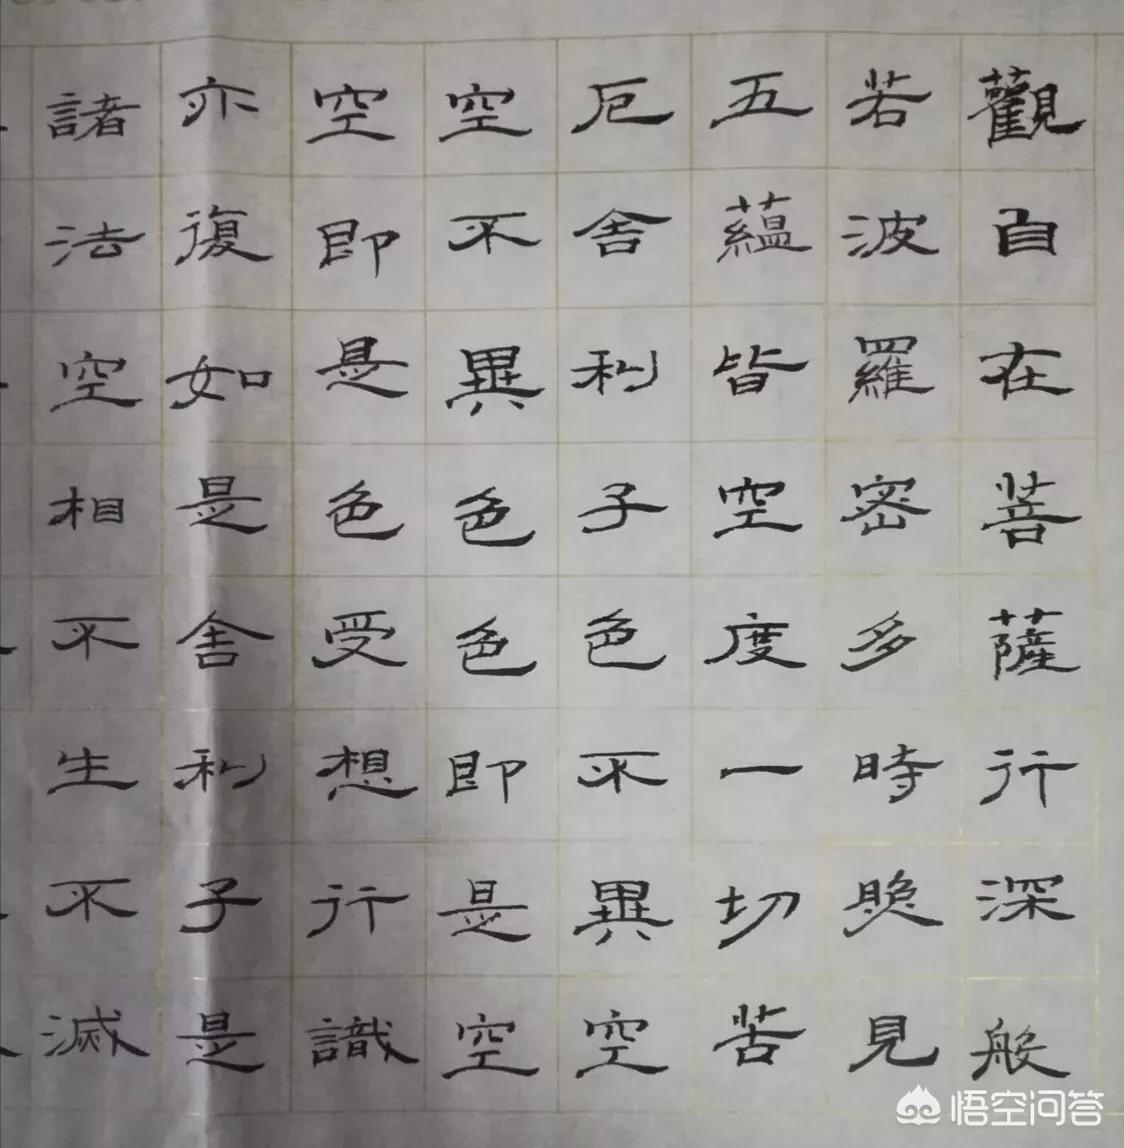 觀自在菩薩行深般
若波羅密多時照見
五蘊皆空度一切苦
厄舍利子色不異空
空不異色色即是空
空即是色受想行識
亦復如是舍利子是
諸法空相不生不滅
悟空问答